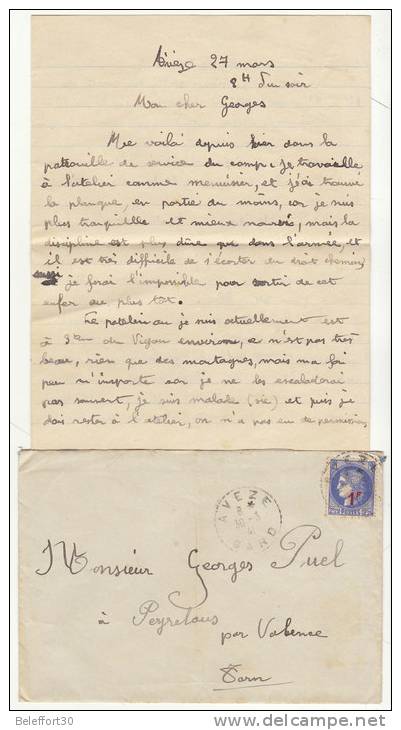 Avèze 27 mars
8H du soir
Mon cher Georges
Me voilà depuis hier dans la
patrouille de service du camp, je travaille
à l'atelier comme menuisier, et j'ai trouvé
la planque en partie du moins, car je suis
plus tranquille et mieux nourri, mais la
discipline est plus dûre que dans l'armée, et
il est très difficile de s'écarter du droit chemin,
aussi je ferai l'impossible pour sortir de cet
enfer au plus tôt.
Le patelin ou je suis actuellement est
à 3km du Vigan environ, ce n'est pas très
beau, rien que des montagnes, mais ma foi
peu m'importe car je ne les escaladerai
pas souvent, je suis malade (sic) et puis je
dois rester à l'atelier, on n'a pas eu de permission
AVEZE
GARD
1F
Monsieur Georges Puel
à Peyrelous
par Valence
Tarn
Beleffort30
www.delcampe.net